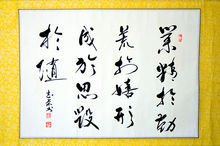 業精於勤
荒於嬉形
成於思毀
於隨